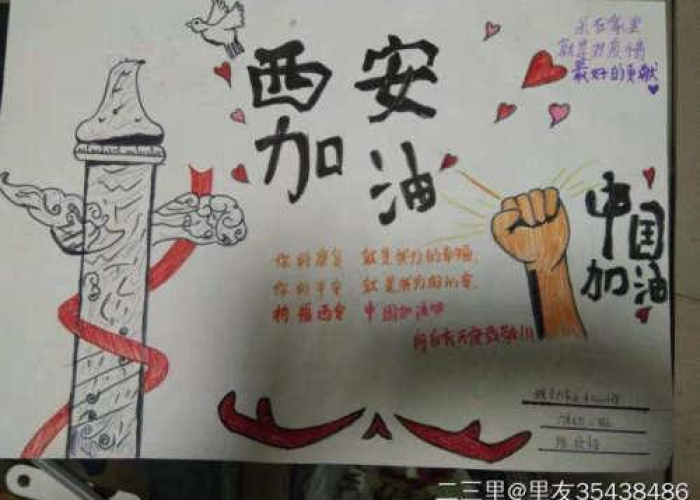 西安
加油
呆在家里
就是对疫情
最好的贡献
中国
加油
你的康复 就是我们的幸福,
你的平安 就是我们的心安,
西安 中国加油
向白衣天使致敬!!!
二三里@里友35438486